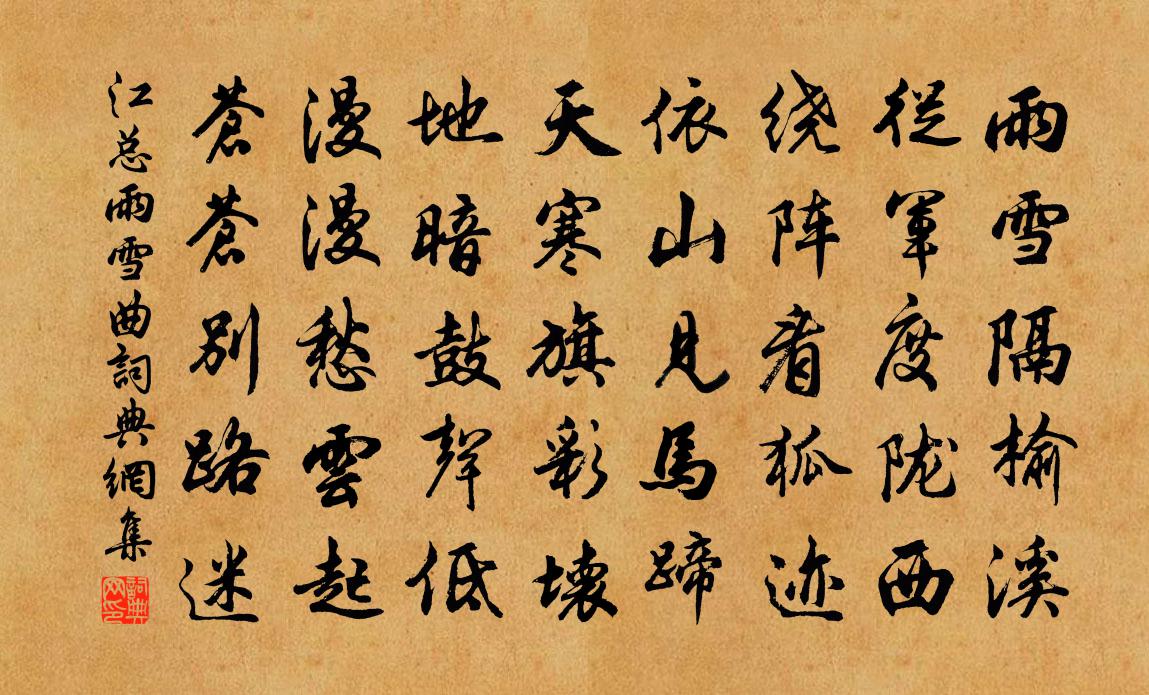 雨雪隔榆溪
從军度陇西
绕阵看狐迹
依山見馬蹄
天寒旗彩壊
地暗鼓聲低
漫漫愁雲起
蒼蒼别路迷
江总雨雪曲詞典網集
詞典网印